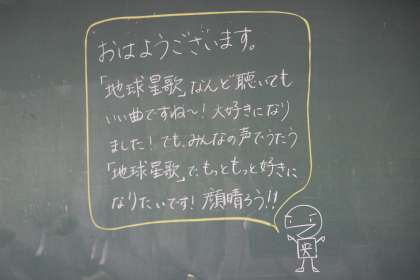 おはようございます。
「地球星歌」なんど聴いても
いい曲ですね〜!大好きになり
ました!でも、みんなの声でうたう
「地球星歌」で、もっともっと好きに
なりたいです!顔晴ろう!!